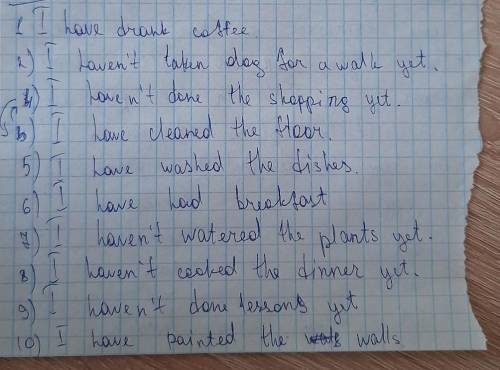 1 I have drank coffee.
2) I haven't taken dog for a walk yet.
4) I haven't done the shopping yet.
3) I have cleaned the floor.
5) I have washed the dishes.
6) I have had breakfast
7) I haven't watered the plants yet.
8) I haven't cooked the dinner yet.
9) I haven't done lessons yet
10) I have painted the walls